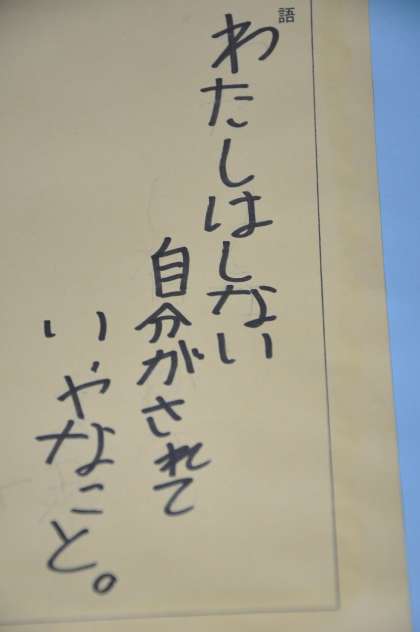 語
わたしはしない
自分がされて
いやなこと。